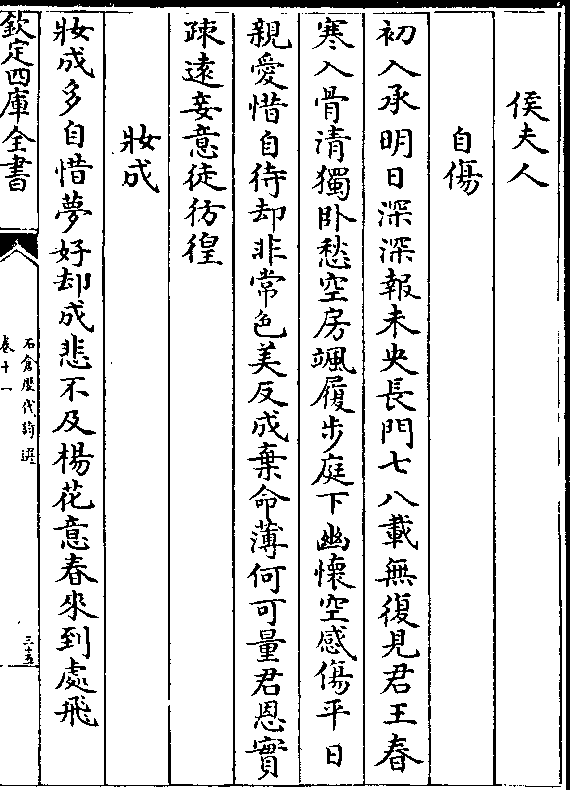 侯夫人
自傷
初入承明日深深報未央長門七八載無復見君王春
寒入骨清獨卧愁空房颯履步庭下幽懷空感傷平日
親愛惜自待却非常色美反成棄命薄何可量君恩實
疎遠妾意徒彷徨
妝成
妝成多自惜夢好却成悲不及楊花意春來到處飛
欽定四庫全書
石倉歷代詩選
卷十一
三十五